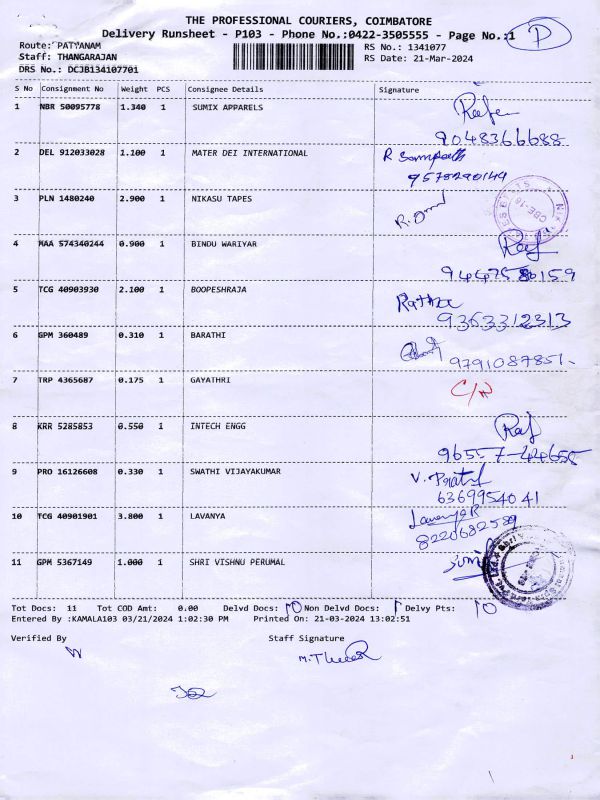 THE PROFESSIONAL COURIERS, COIMBATORE
Delivery Runsheet - P103 - Phone No.:0422-3505555 - Page No.:1 P
Route: PATYANAM RS No.: 1341077
Staff: THANGARAJAN RS Date: 21-Mar-2024
DRS No.: DCJB134107701
S No Consignment No Weight PCS Consignee Details Signature
1 NBR 50095778 1.340 1 SUMIX APPARELS
9048366688
2 DEL 912033028 1.100 1 MATER DEI INTERNATIONAL R Sampath
9578290149
3 PLN 1480240 2.900 1 NIKASU TAPES
4 MAA 574340244 0.900 1 BINDU WARIYAR
5 TCG 40903930 2.100 1 BOOPESHRAJA
9363312313
6 GPM 360489 0.310 1 BARATHI
9791087851
7 TRP 4365687 0.175 1 GAYATHRI
8 KRR 5285853 0.550 1 INTECH ENGG
96557-44655
9 PRO 16126608 0.330 1 SWATHI VIJAYAKUMAR
6369954041
10 TCG 40901901 3.800 1 LAVANYA Lavanya R
8220682589
11 GPM 5367149 1.000 1 SHRI VISHNU PERUMAL
Tot Docs: 11 Tot COD Amt: 0.00 Delvd Docs: 10 Non Delvd Docs: 1 Delvy Pts: 10
Entered By :KAMALA103 03/21/2024 1:02:30 PM Printed On: 21-03-2024 13:02:51
Verified By Staff Signature